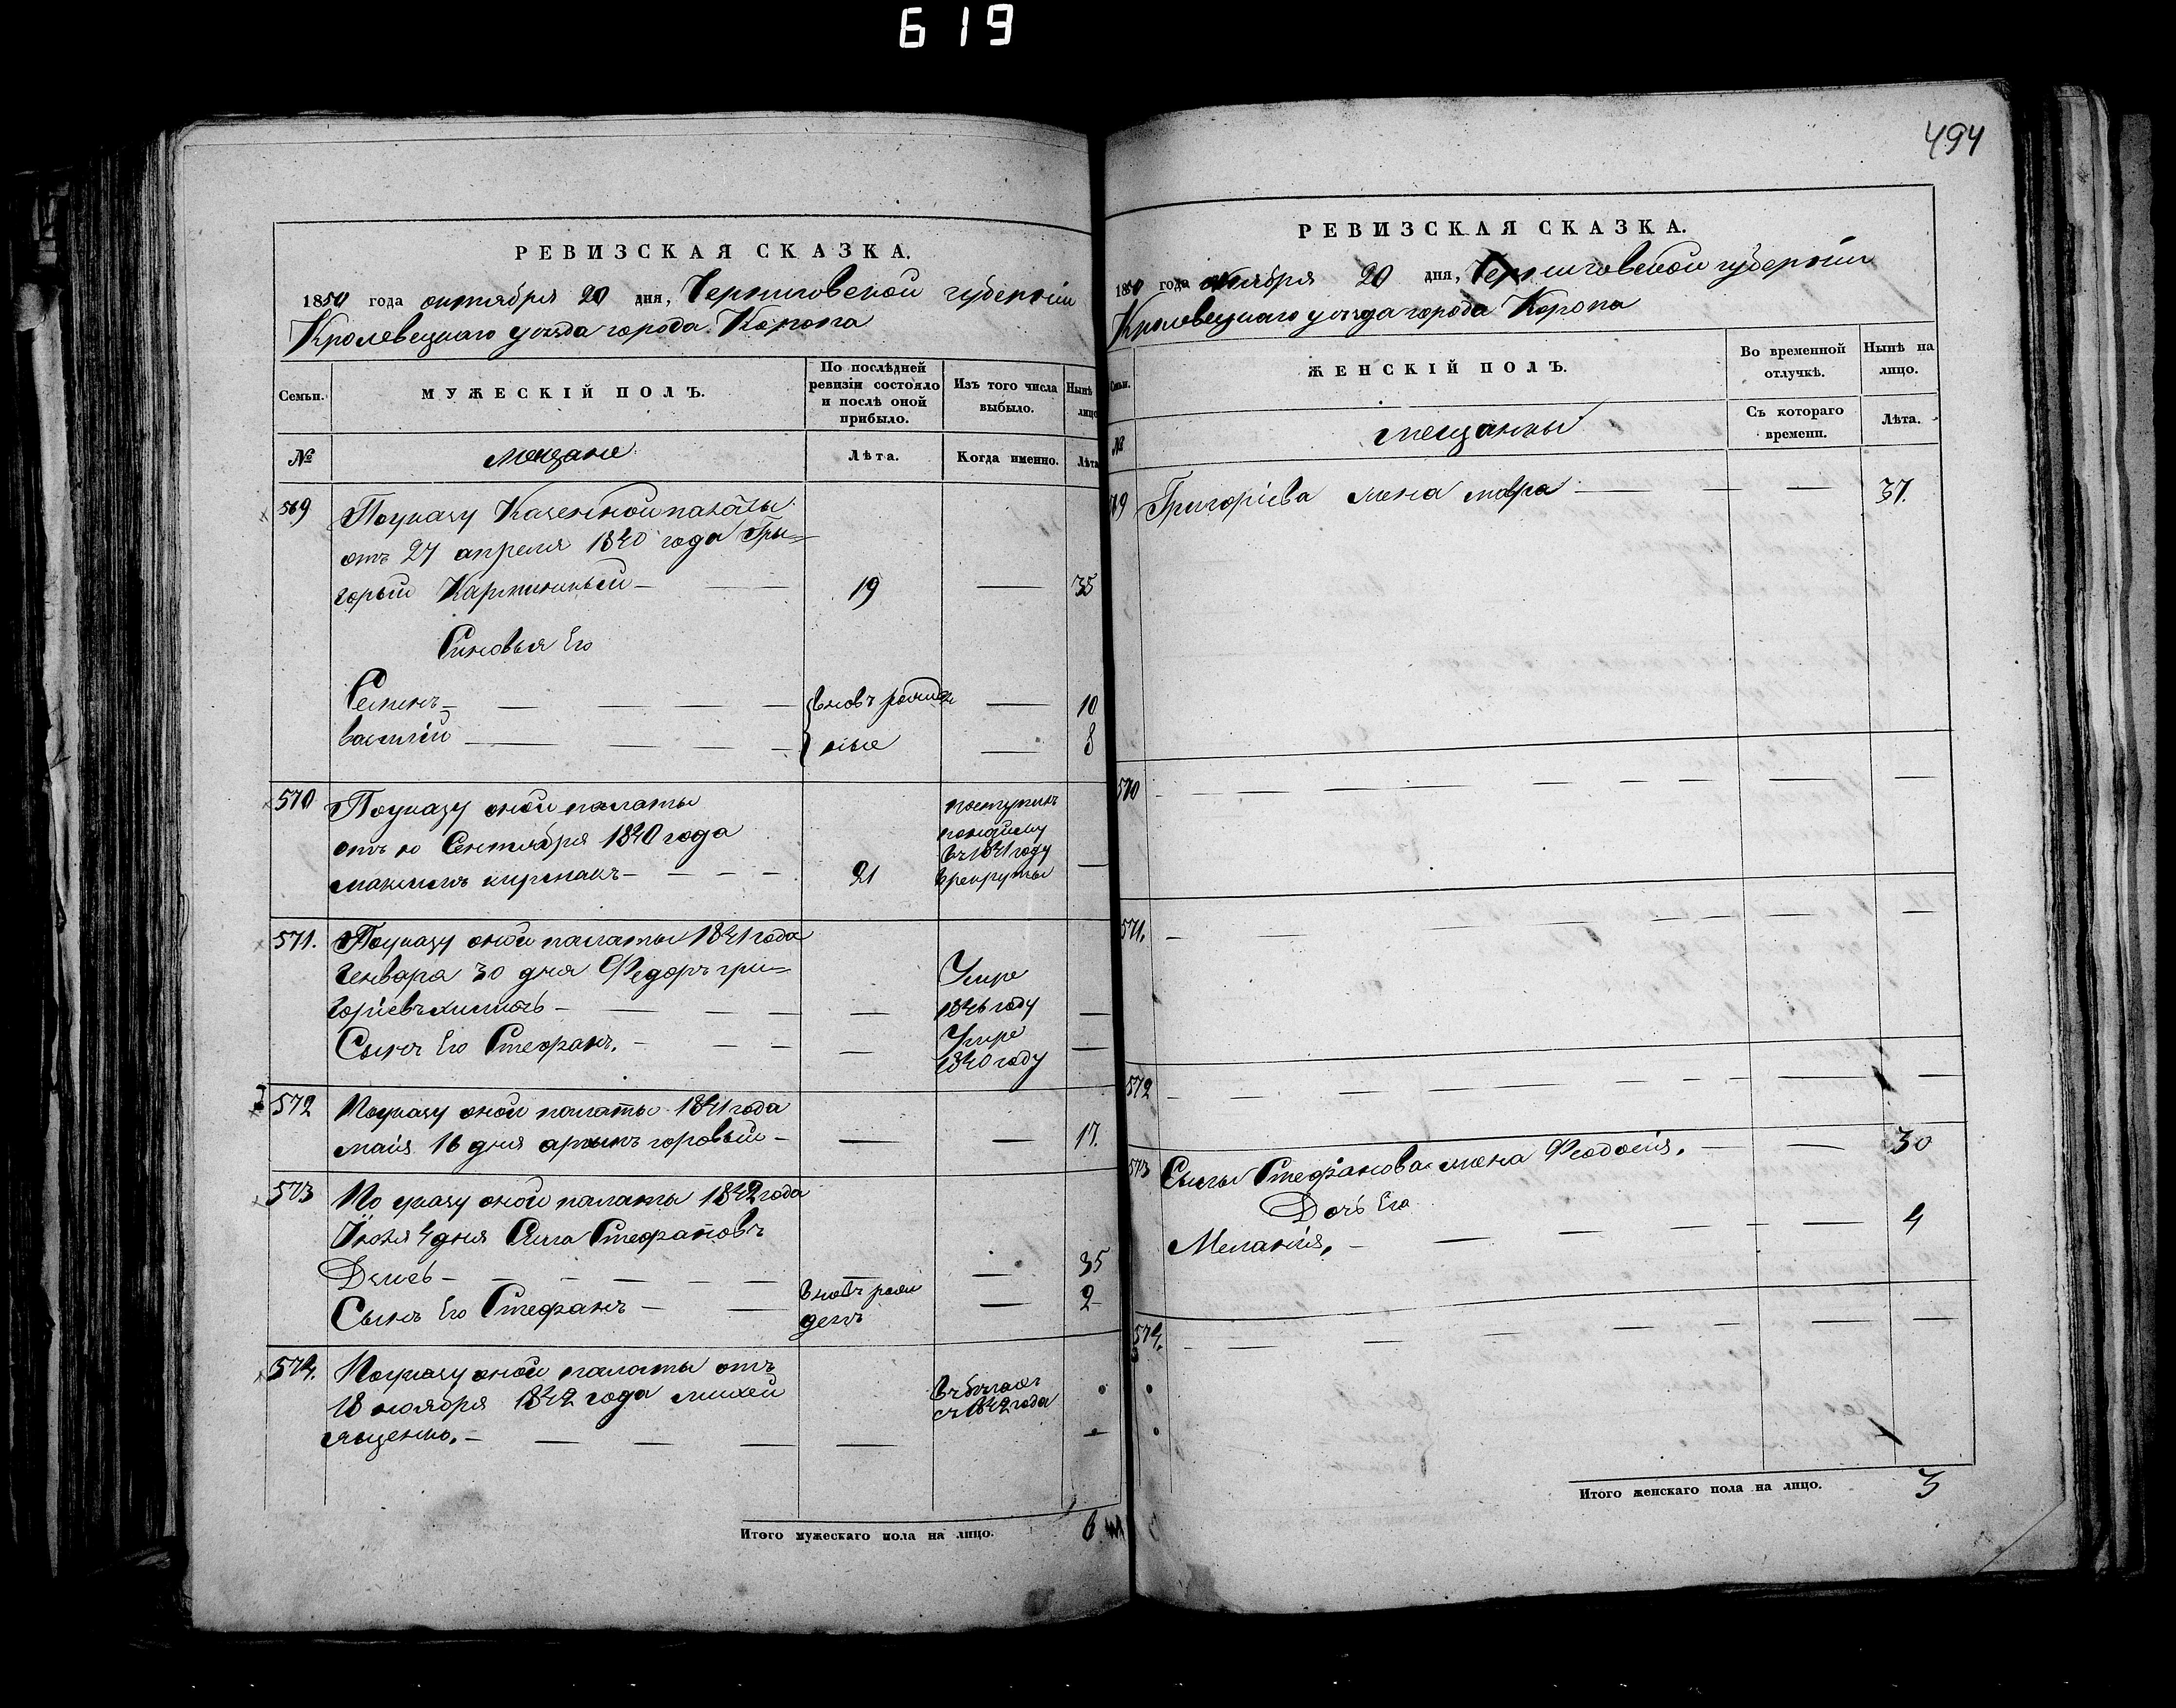 619
494
РЕВИЗСКАЯ СКАЗКА.
1850 года октября 20 дня, Черниговской губерніи
Кролевецкаго уѣзда города Коропа
Семьи.
МУЖЕСКІЙ ПОЛЪ.
По послѣдней ревизіи состояло и послѣ оной прибыло.
Изъ того числа выбыло.
Нынѣ лицо
№
Мещане
Лѣта.
Когда именно.
Лѣта
569 По указу Казенной палаты
отъ 27 апреля 1840 года Гры=
горый 19 — 35
Синовья Его
Семенъ — вновъ рожден 10
василій — ные — 8
570 По указу оной палаты
отъ 10 Сентября 1840 года
максимъ 21
поступилъ
въ 1841 году
врекруты —
571. По указу оной палаты 1841 года
Генвара 30 дня Федоръ гри=
горіевъ — — Умре 1846 году —
Сынъ Его Стефанъ. — — Умре 1840 году —
572 По указу оной палаты 1841 года
маія 16 дня горовый — — — 17.
573 По указу оной палаты 1842 года
4 дня Сила Стефановъ
— — — 35
Сынъ Его Стефанъ — вновъ рож денъ — 2
574. По указу оной палаты отъ
18 ноября 1842 года михей
ященко. — — въ бегахъ съ 1842 года —
Итого мужескаго пола на лицо. 6
РЕВИЗСКАЯ СКАЗКА.
1850 года октября 20 дня, Черниговской губерніи
Кролевецкаго уѣзда города Коропа
Семьи.
ЖЕНСКІЙ ПОЛЪ.
Во временной отлучкѣ.
Нынѣ на лицо.
№
мещанки
Съ котораго времени.
Лѣта.
569 Григоріева жена мавра — — 37.
570 — — —
571. — — —
572 — — —
573 Силы Стефанова жена Феодосія. — — 30
Дочь Его
Меланія. — — 4
574. — — —
Итого женскаго пола на лицо. 3